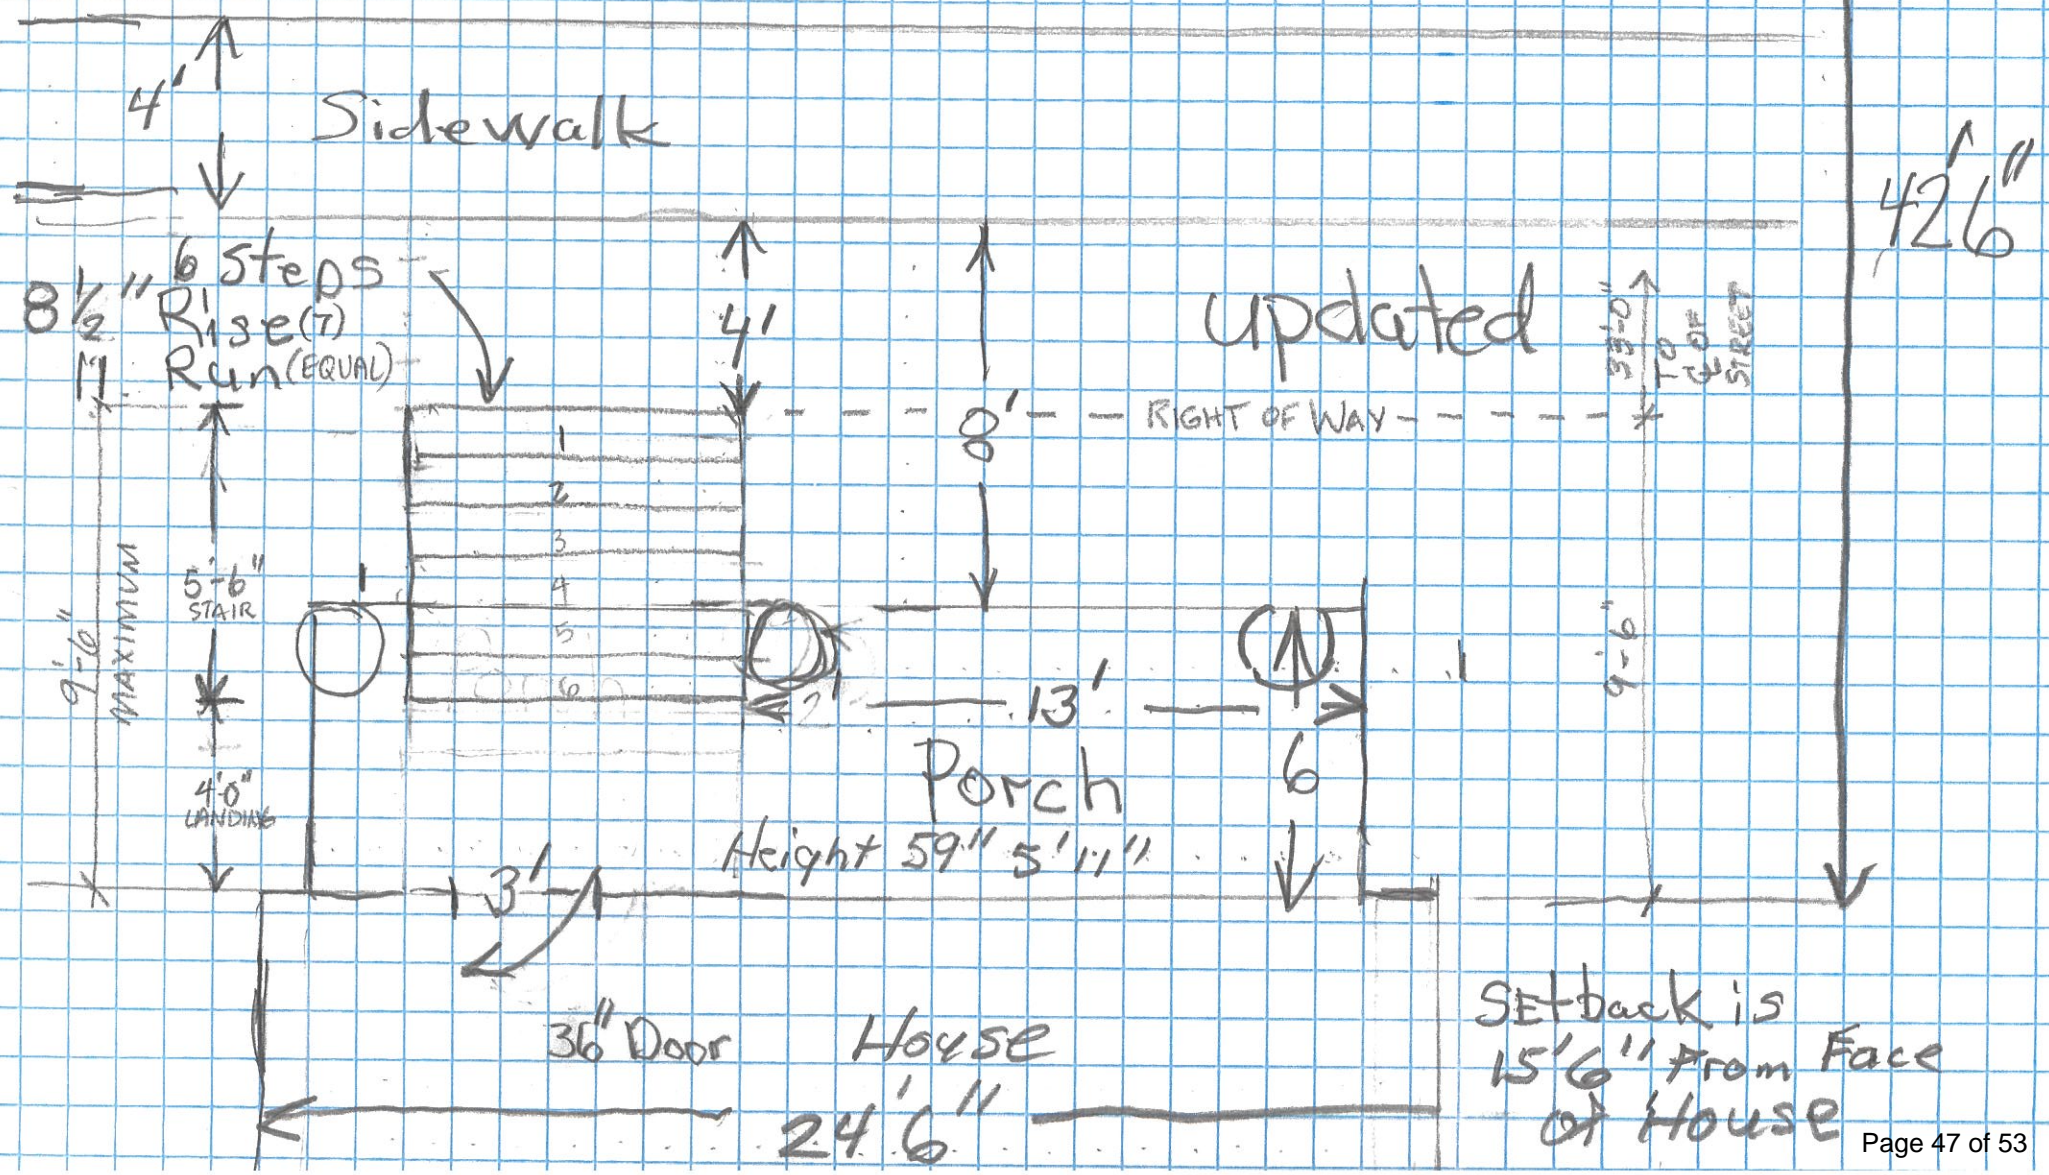 4'
Sidewalk
42'6"
6 Steps
8 1/2" Rise(7)
11 Run(EQUAL)
4'
8'
updated
33'-0"
TO
℄ OF
STREET
RIGHT OF WAY
1
2
3
4
5
6
5'-6"
STAIR
9'-6"
MAXIMUM
4'0"
LANDING
2'
13'
6
9'-6"
Porch
Height 59" 5'11"
3'
36" Door
House
24'6"
SEtback is
15'6" From Face
of House
Page 47 of 53